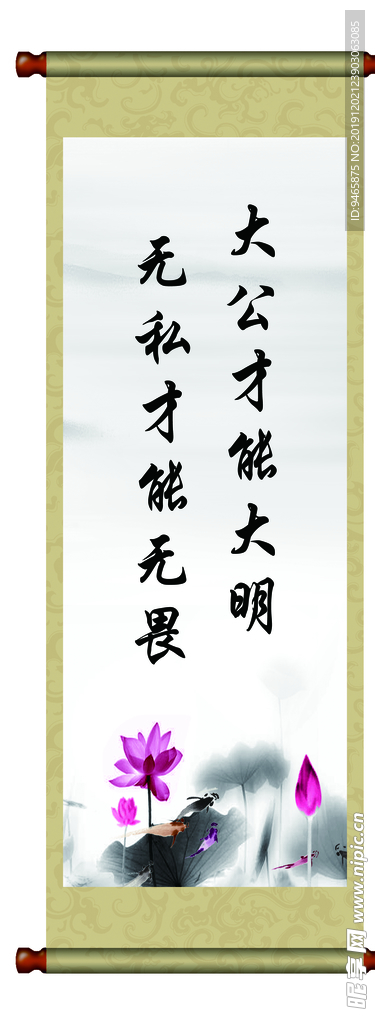 大公才能大明
无私才能无畏
ID:9465875 NO:20191202123903063085
昵享网 www.nipic.cn